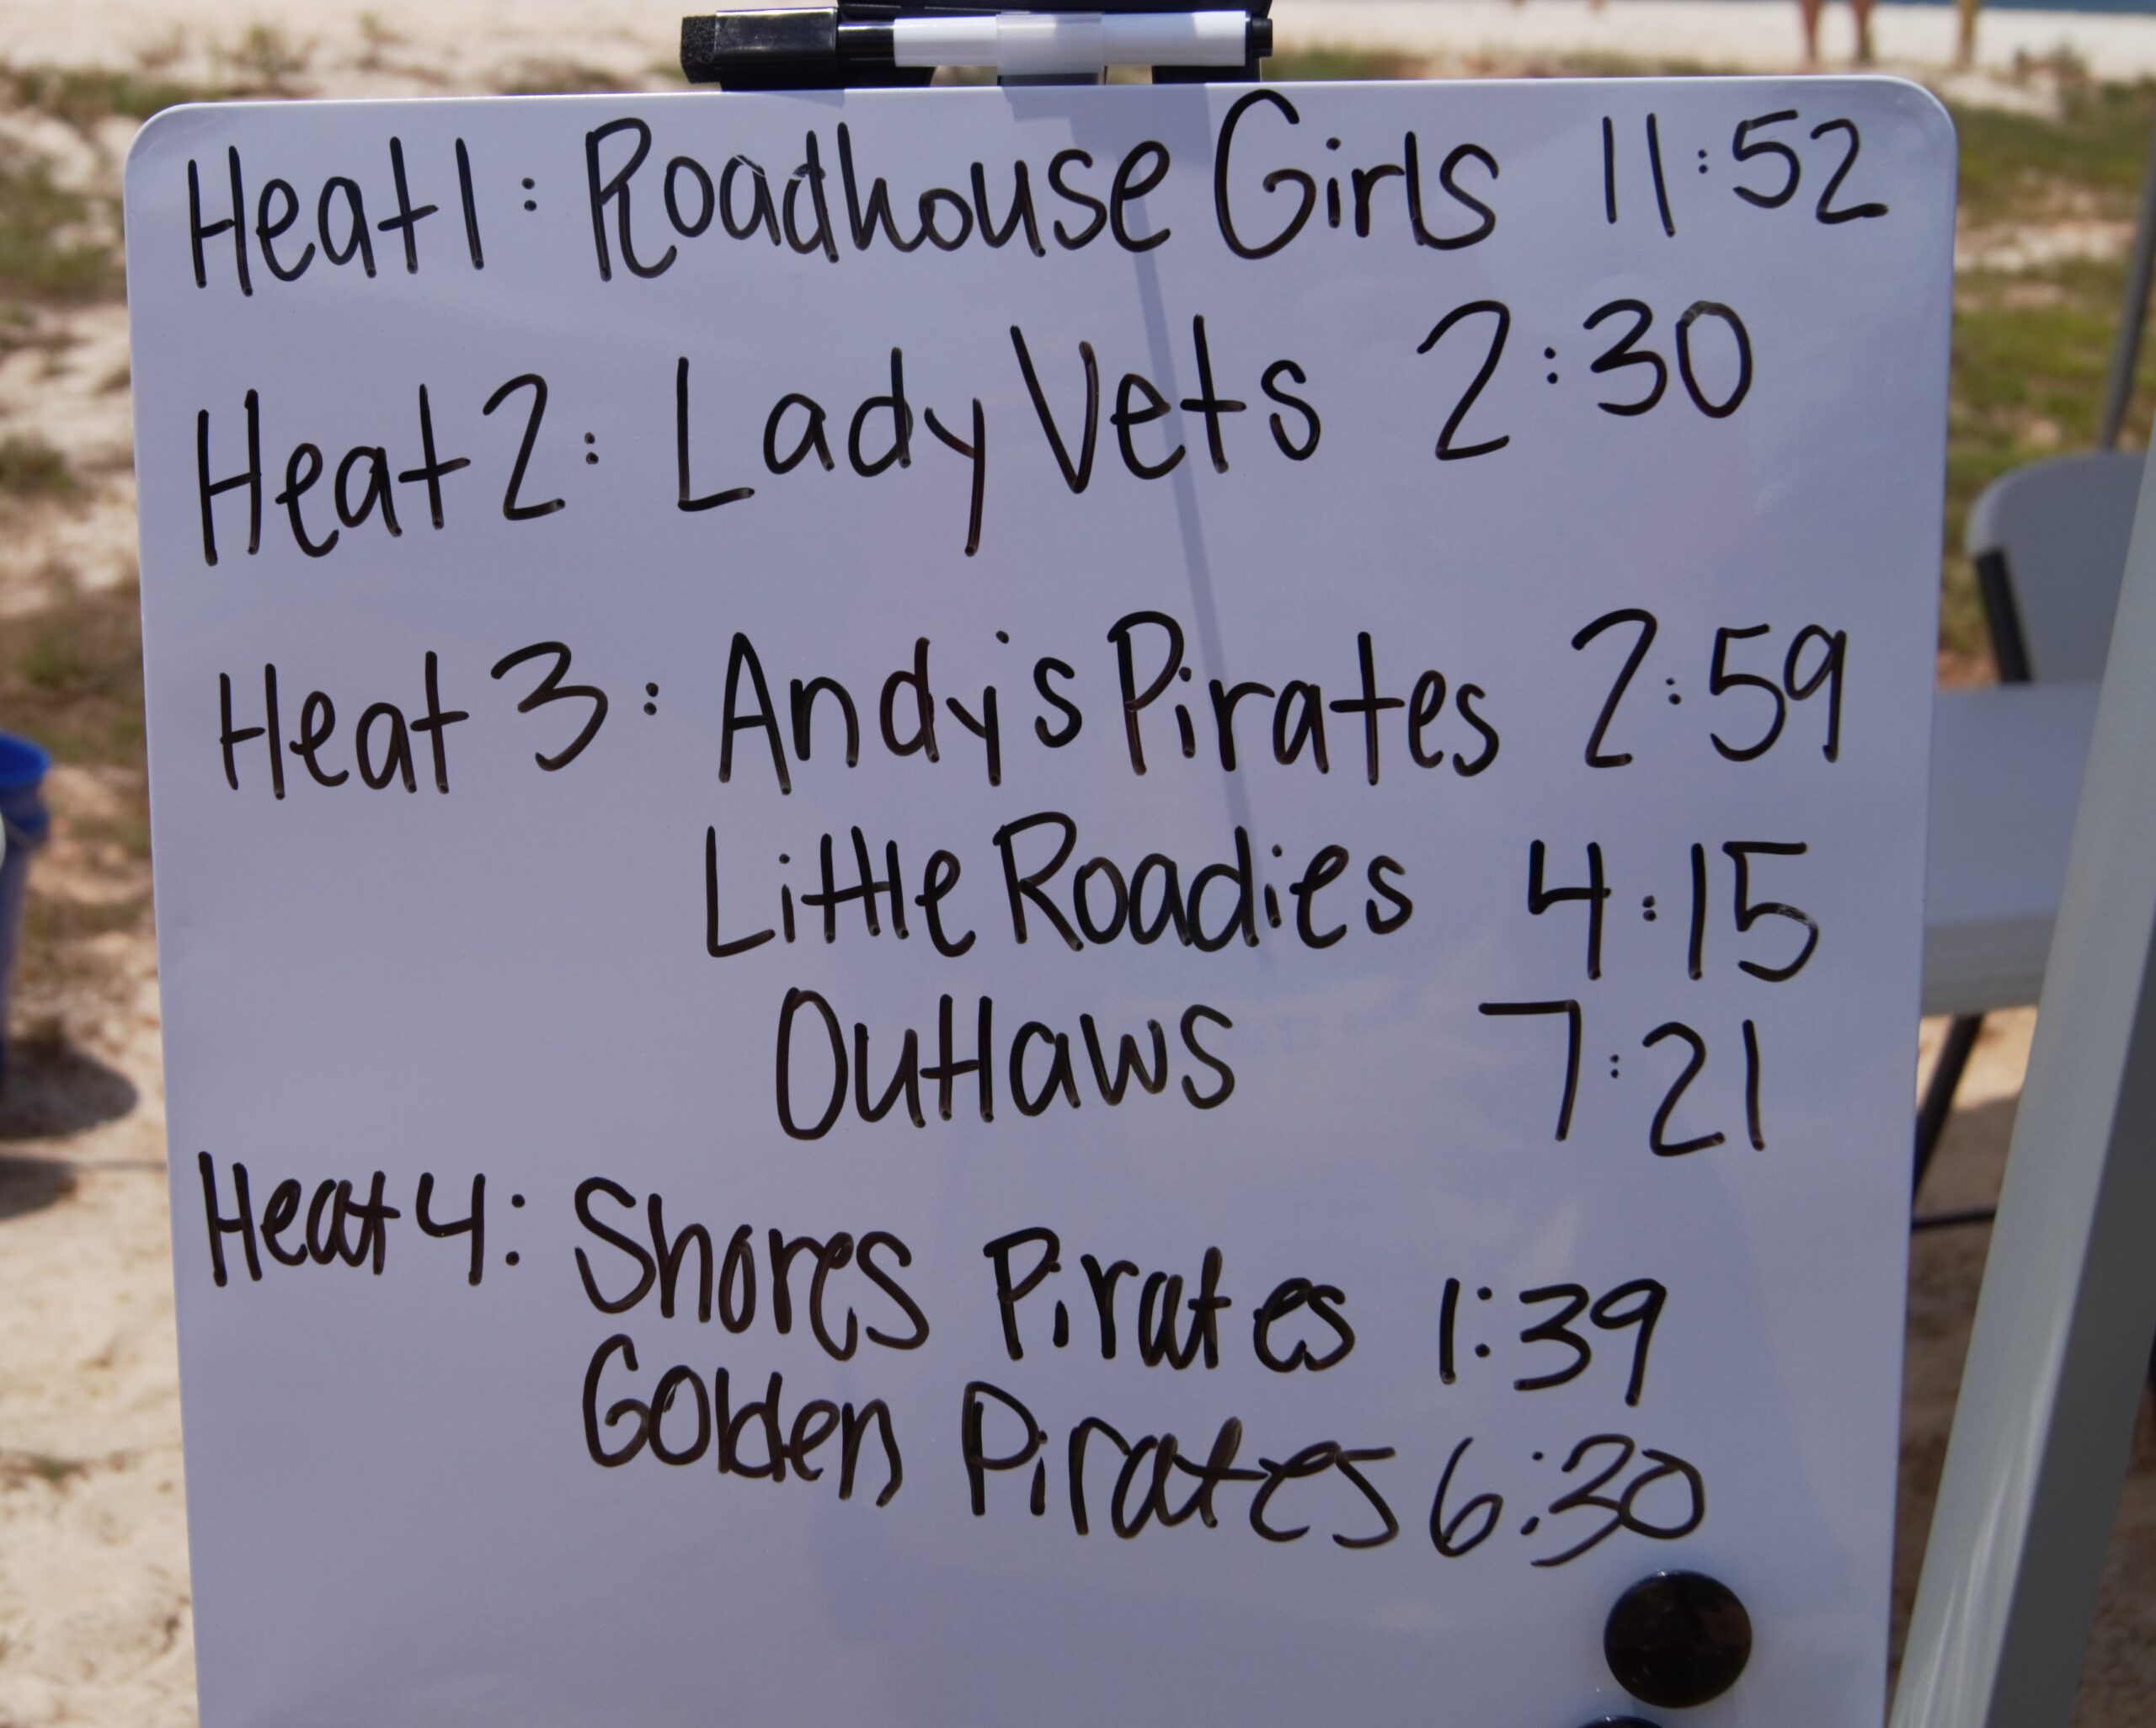 Heat 1: Roadhouse Girls 11:52
Heat 2: Lady Vets 2:30
Heat 3: Andy's Pirates 2:59
Little Roadies 4:15
Outlaws 7:21
Heat 4: Shores Pirates 1:39
Golden Pirates 6:30